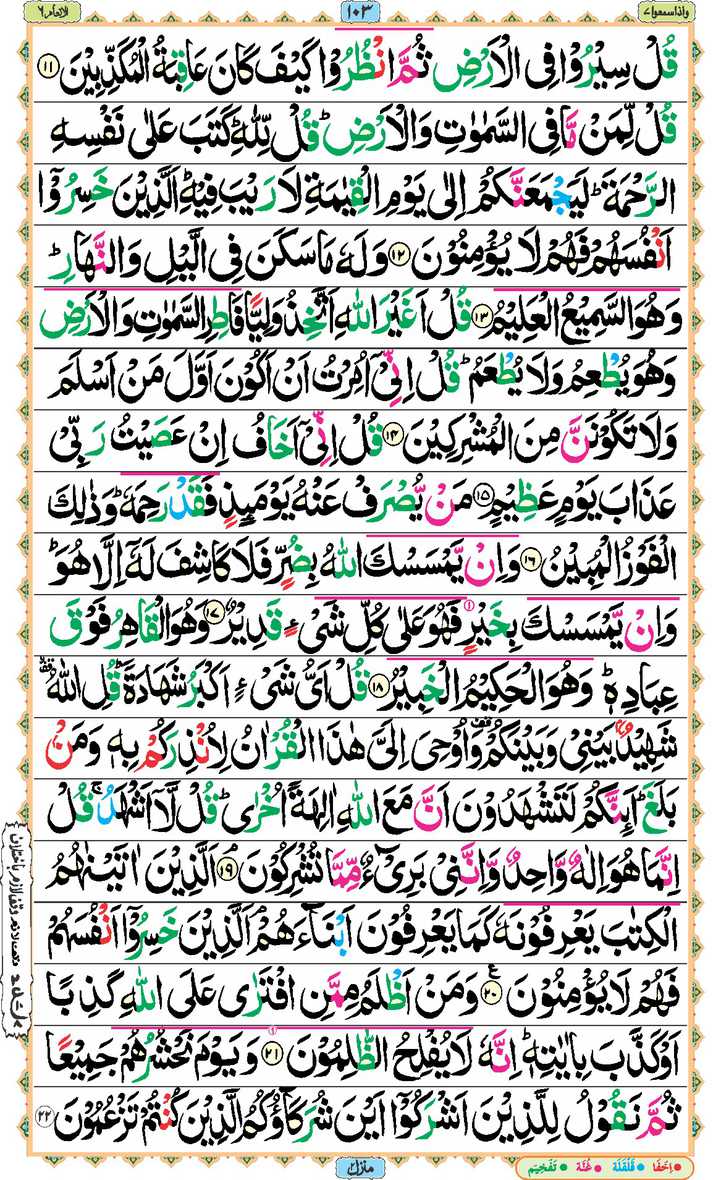 واذاسمعوا۷ ۱۰۳ الانعام۶
قُلْ سِيْرُوْا فِى الْاَرْضِ ثُمَّ انْظُرُوْا كَيْفَ كَانَ عَاقِبَةُ الْمُكَذِّبِيْنَ ۱۱
قُلْ لِّمَنْ مَّا فِى السَّمٰوٰتِ وَالْاَرْضِؕ قُلْ لِّلّٰهِؕ كَتَبَ عَلٰى نَفْسِهِ
الرَّحْمَةَؕ لَيَجْمَعَنَّكُمْ اِلٰى يَوْمِ الْقِيٰمَةِ لَا رَيْبَ فِيْهِؕ اَلَّذِيْنَ خَسِرُوْۤا
اَنْفُسَهُمْ فَهُمْ لَا يُؤْمِنُوْنَ ۱۲ وَلَهٗ مَا سَكَنَ فِى الَّيْلِ وَالنَّهَارِؕ
وَهُوَ السَّمِيْعُ الْعَلِيْمُ ۱۳ قُلْ اَغَيْرَ اللّٰهِ اَتَّخِذُ وَلِيًّا فَاطِرِ السَّمٰوٰتِ وَالْاَرْضِ
وَهُوَ يُطْعِمُ وَلَا يُطْعَمُؕ قُلْ اِنِّىْۤ اُمِرْتُ اَنْ اَكُوْنَ اَوَّلَ مَنْ اَسْلَمَ
وَلَا تَكُوْنَنَّ مِنَ الْمُشْرِكِيْنَ ۱۴ قُلْ اِنِّىْۤ اَخَافُ اِنْ عَصَيْتُ رَبِّىْ
عَذَابَ يَوْمٍ عَظِيْمٍ ۱۵ مَنْ يُّصْرَفْ عَنْهُ يَوْمَئِذٍ فَقَدْ رَحِمَهٗؕ وَذٰلِكَ
الْفَوْزُ الْمُبِيْنُ ۱۶ وَاِنْ يَّمْسَسْكَ اللّٰهُ بِضُرٍّ فَلَا كَاشِفَ لَهٗۤ اِلَّا هُوَؕ
وَاِنْ يَّمْسَسْكَ بِخَيْرٍ فَهُوَ عَلٰى كُلِّ شَىْءٍ قَدِيْرٌ ۱۷ وَهُوَ الْقَاهِرُ فَوْقَ
عِبَادِهٖؕ وَهُوَ الْحَكِيْمُ الْخَبِيْرُ ۱۸ قُلْ اَىُّ شَىْءٍ اَكْبَرُ شَهَادَةًؕ قُلِ اللّٰهُ
شَهِيْدٌۢ بَيْنِىْ وَبَيْنَكُمْ وَاُوْحِىَ اِلَىَّ هٰذَا الْقُرْاٰنُ لِاُنْذِرَكُمْ بِهٖ وَمَنْۢ
بَلَغَؕ اَئِنَّكُمْ لَتَشْهَدُوْنَ اَنَّ مَعَ اللّٰهِ اٰلِهَةً اُخْرٰىؕ قُلْ لَّاۤ اَشْهَدُۚ قُلْ
اِنَّمَا هُوَ اِلٰهٌ وَّاحِدٌ وَّاِنَّنِىْ بَرِىْٓءٌ مِّمَّا تُشْرِكُوْنَۘ ۱۹ اَلَّذِيْنَ اٰتَيْنٰهُمُ
الْكِتٰبَ يَعْرِفُوْنَهٗ كَمَا يَعْرِفُوْنَ اَبْنَآءَهُمْۘ اَلَّذِيْنَ خَسِرُوْۤا اَنْفُسَهُمْ
فَهُمْ لَا يُؤْمِنُوْنَ ۲۰ وَمَنْ اَظْلَمُ مِمَّنِ افْتَرٰى عَلَى اللّٰهِ كَذِبًا
اَوْ كَذَّبَ بِاٰيٰتِهٖؕ اِنَّهٗ لَا يُفْلِحُ الظّٰلِمُوْنَ ۲۱ وَيَوْمَ نَحْشُرُهُمْ جَمِيْعًا
ثُمَّ نَقُوْلُ لِلَّذِيْنَ اَشْرَكُوْۤا اَيْنَ شُرَكَآؤُكُمُ الَّذِيْنَ كُنْتُمْ تَزْعُمُوْنَ ۲۲
منزل۲
اِخْفَا قَلْقَلَة غُنَّة تَفْخِيْم